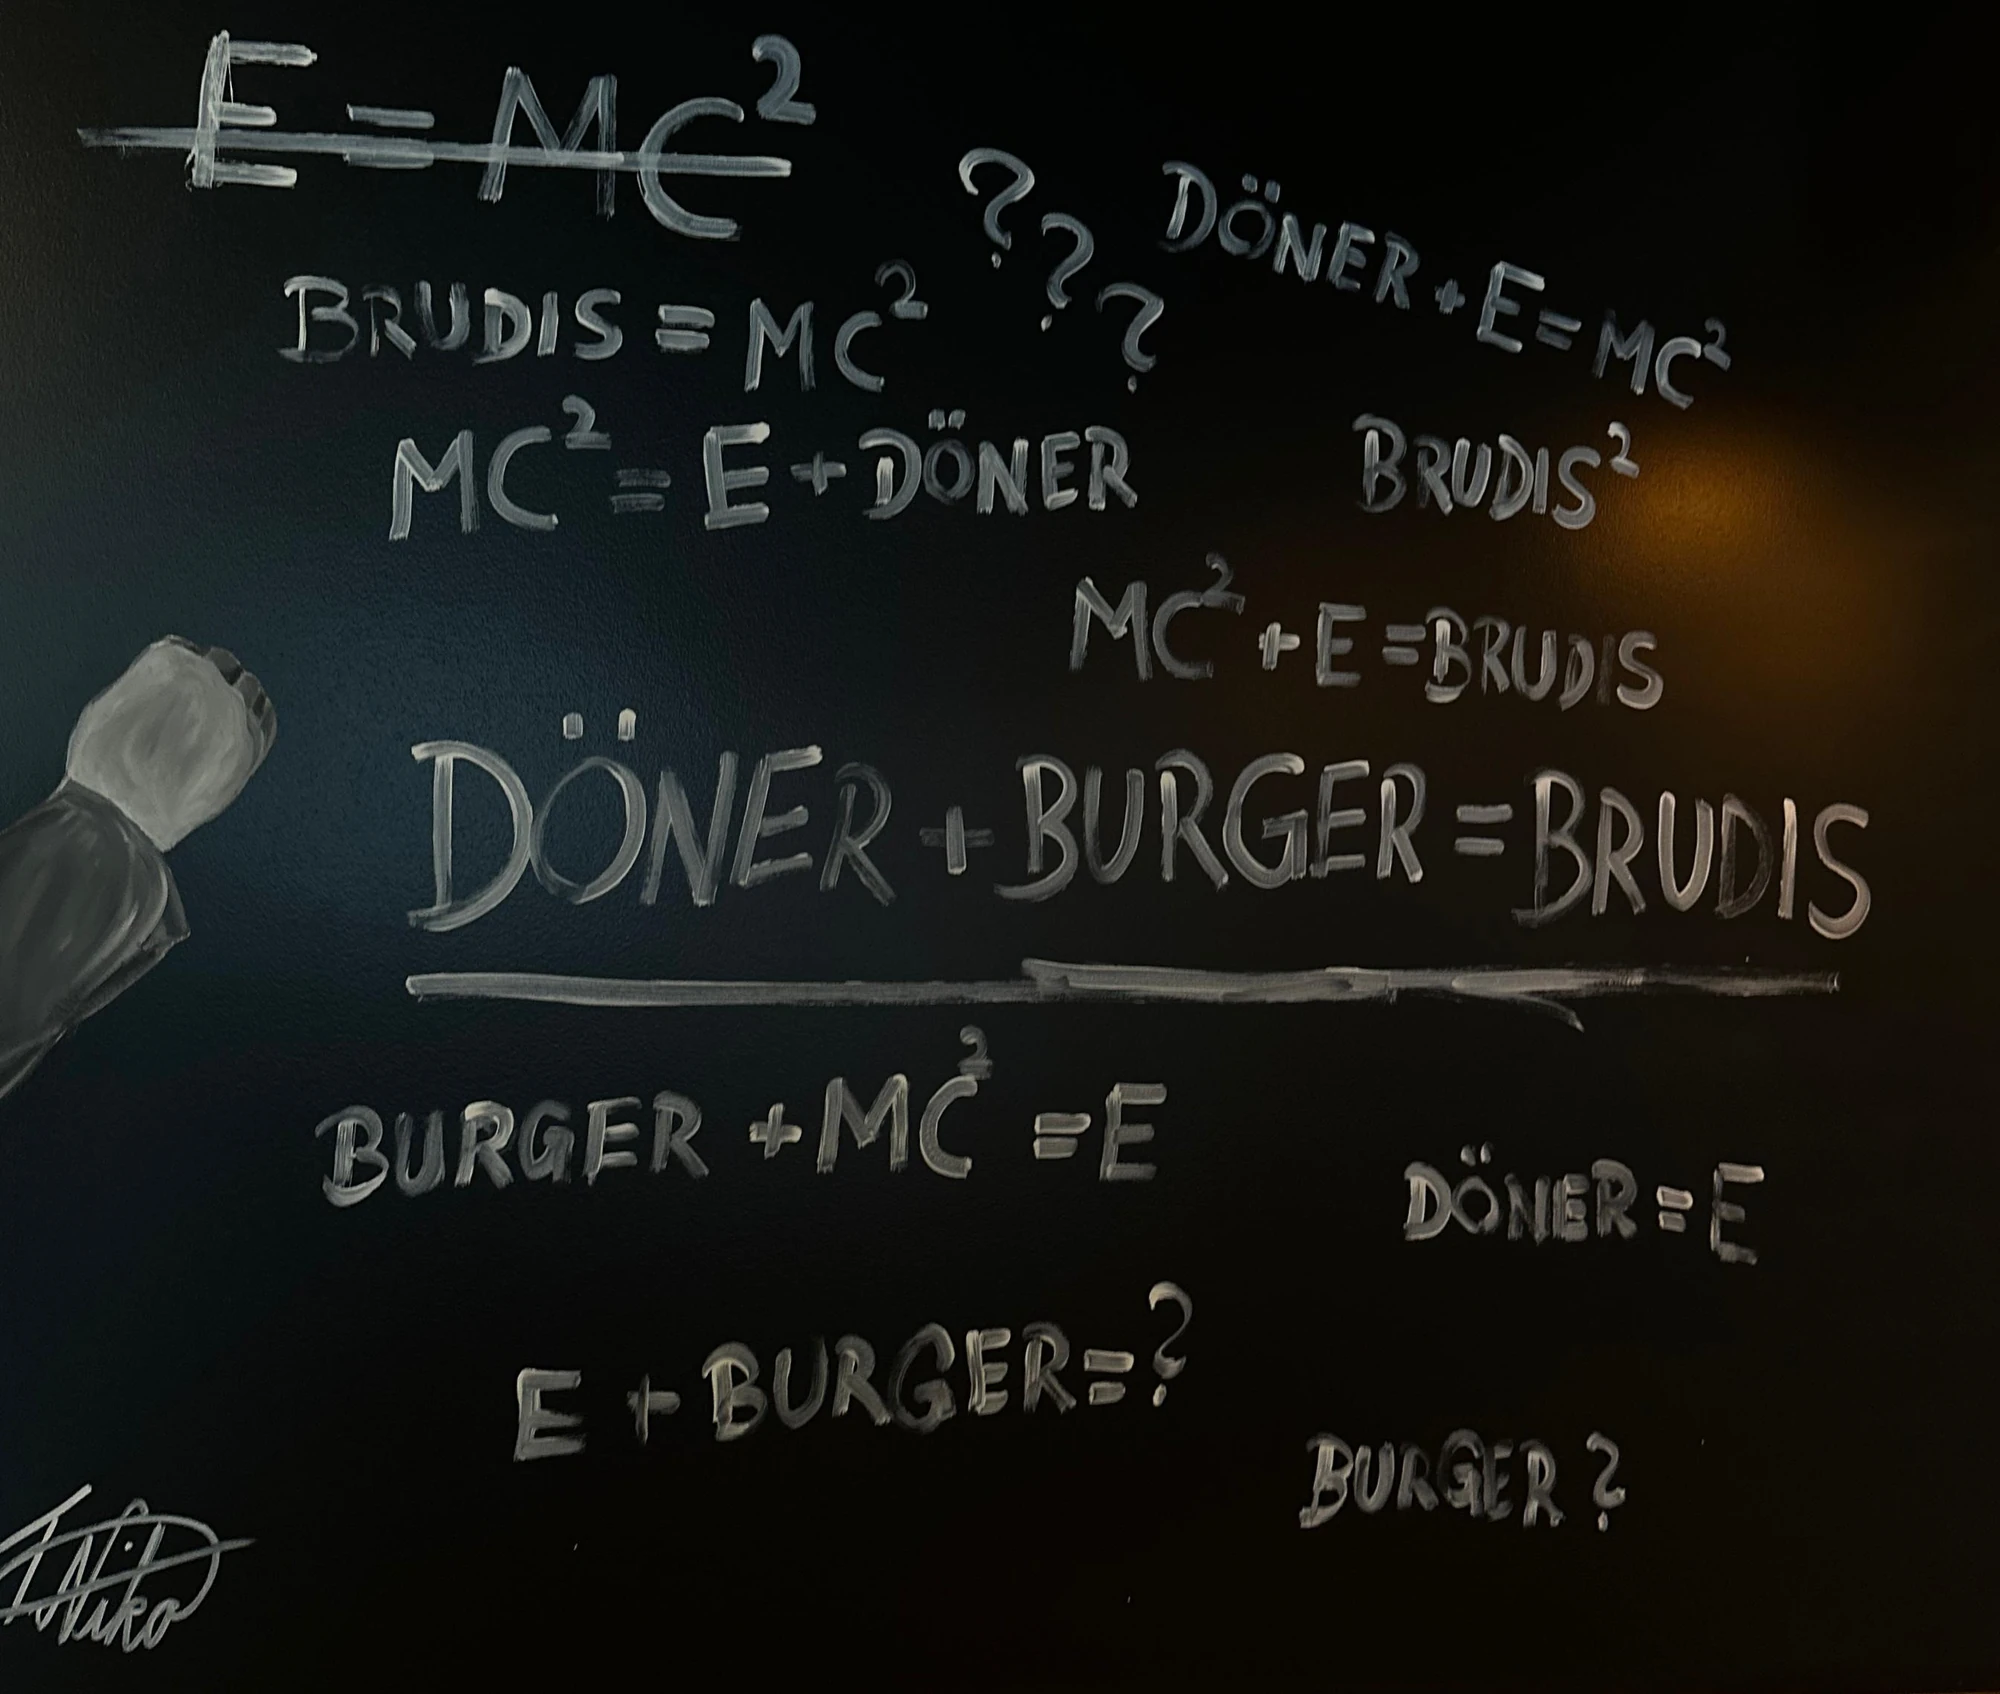 E = MC²
? ? ?
DÖNER + E = MC²
BRUDIS = MC²
MC² = E + DÖNER
BRUDIS²
MC² + E = BRUDIS
DÖNER + BURGER = BRUDIS
BURGER + MC² = E
DÖNER = E
E + BURGER = ?
BURGER ?
Niko